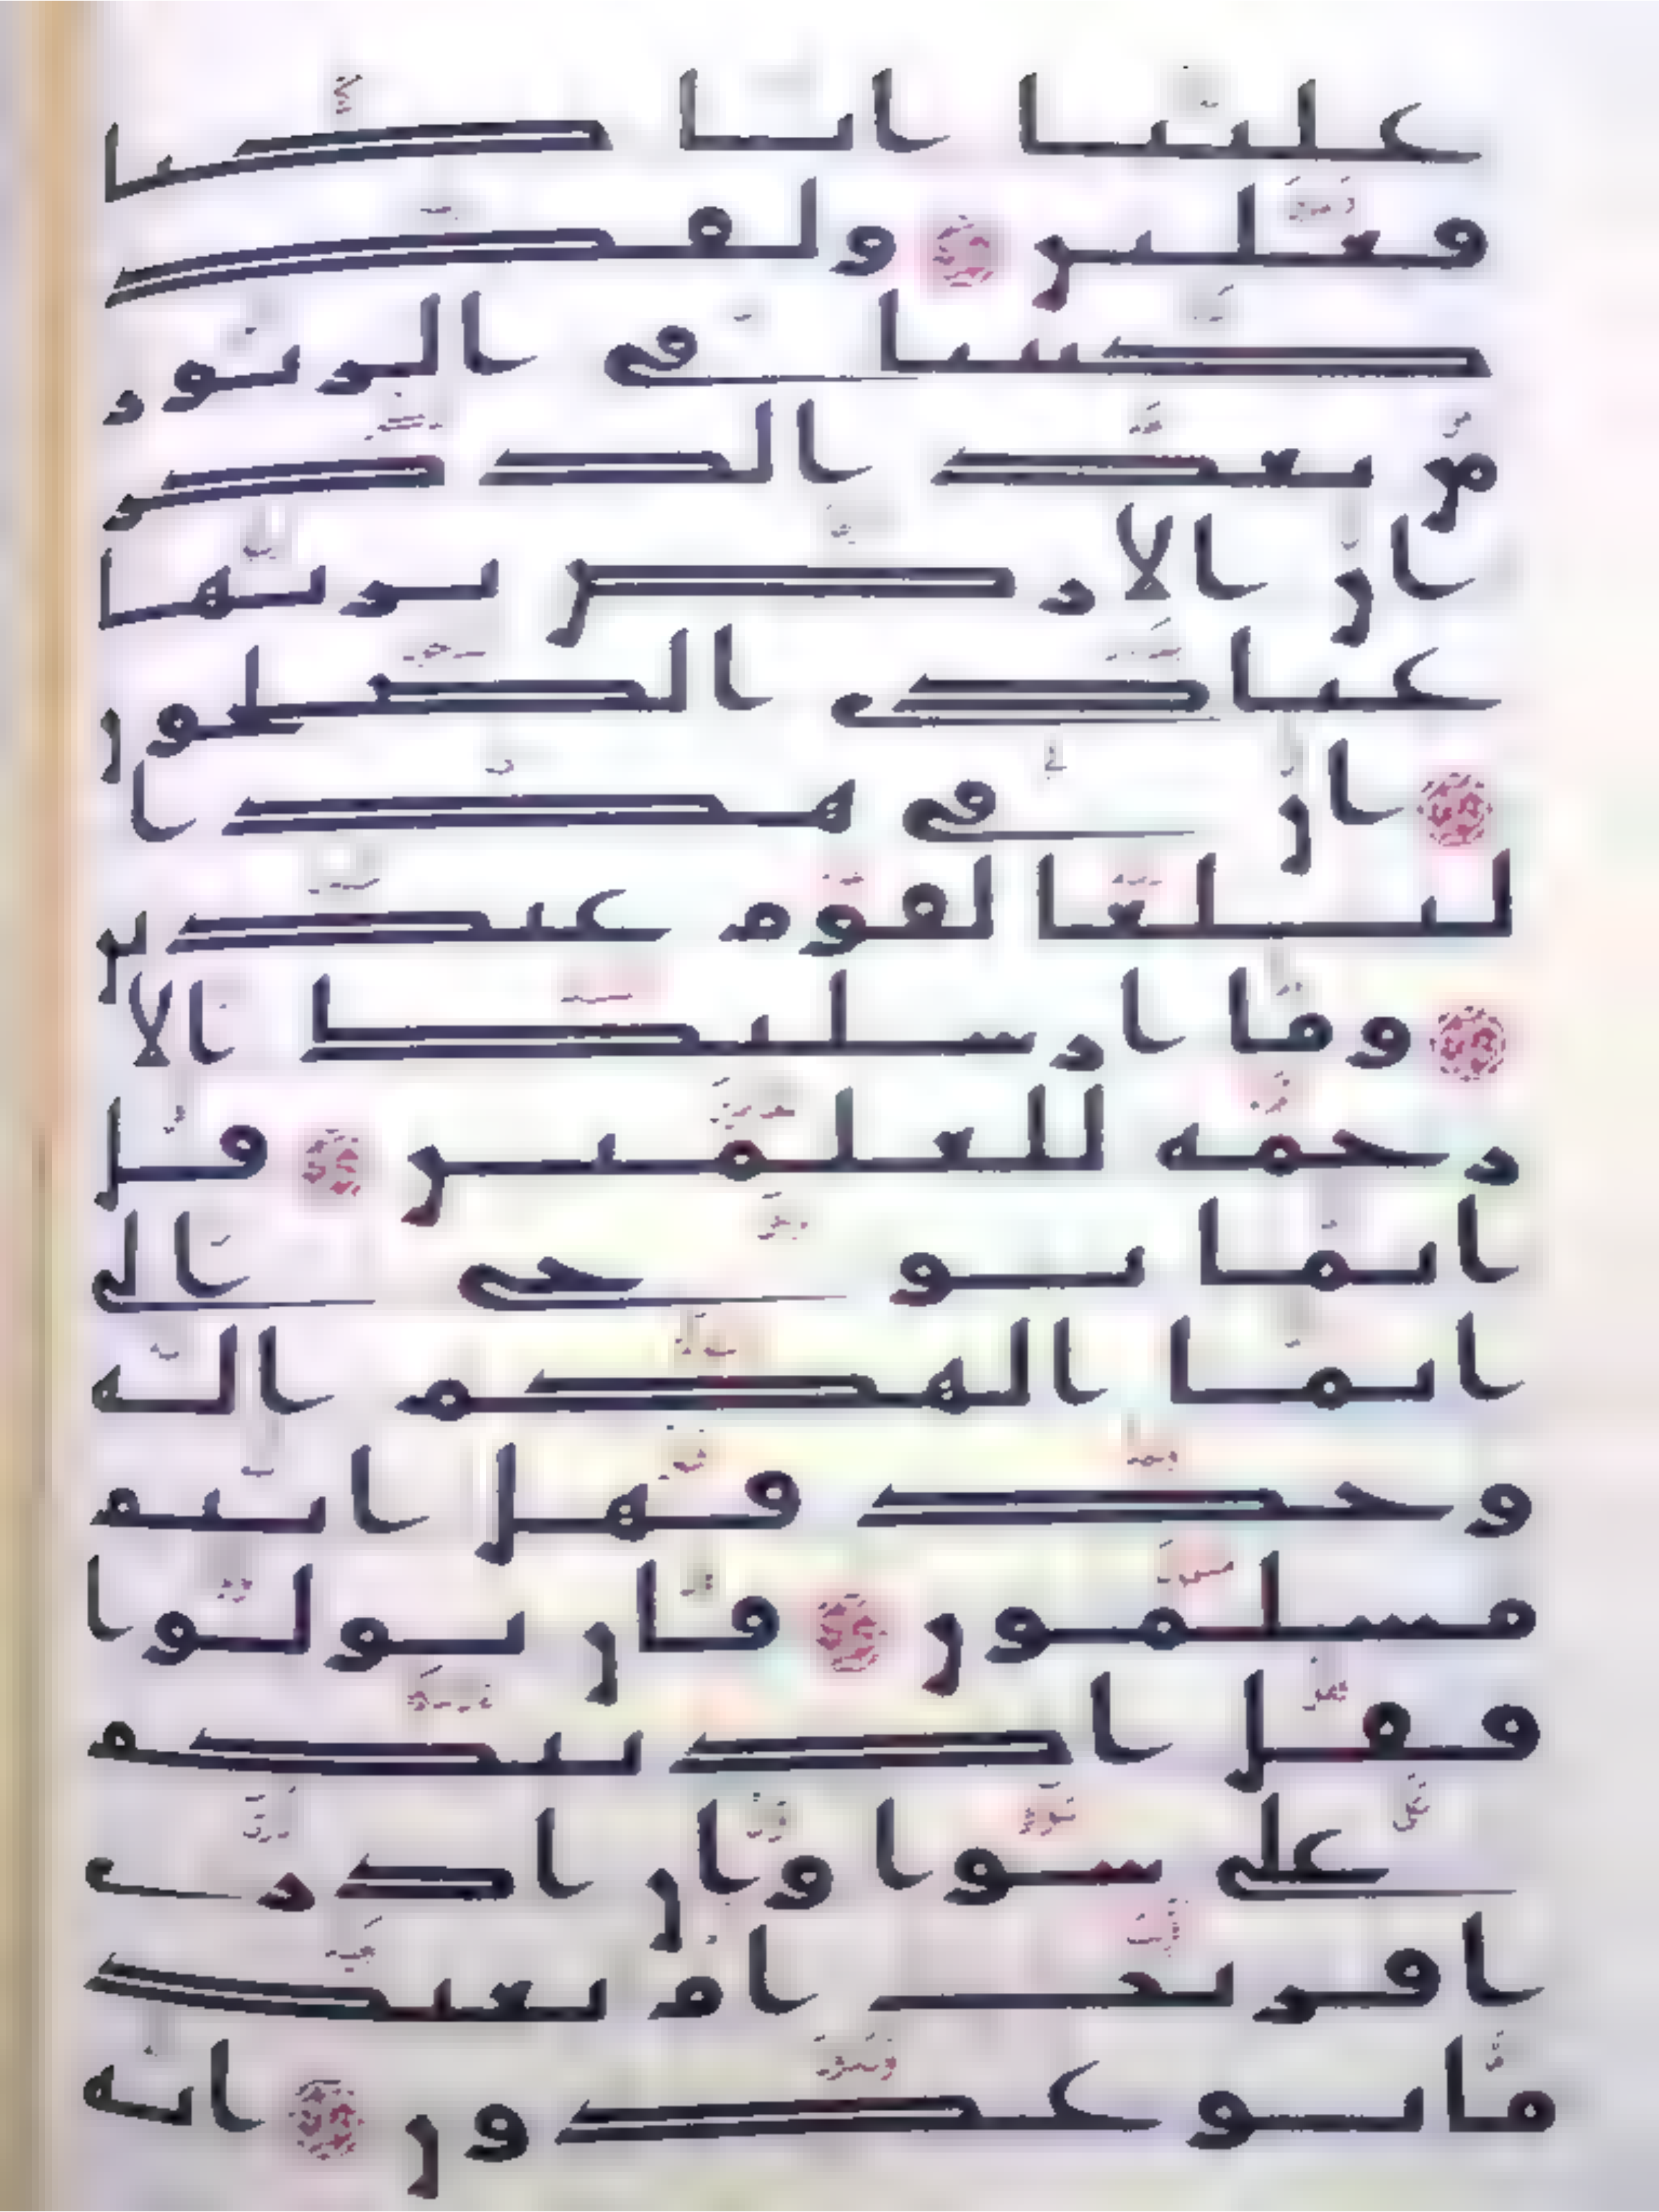 علينا انا كنا
فعلين ولقد
كتبنا في الزبور
من بعد الذكر
ان الارض يرثها
عبادي الصلحون
ان في هذا
لبلغا لقوم عبدين
وما ارسلنك الا
رحمة للعلمين قل
انما يوحى الي
انما الهكم اله
وحد فهل انتم
مسلمون فان تولوا
فقل اذنتكم
على سوا وان ادري
اقريب ام بعيد
ما توعدون انه